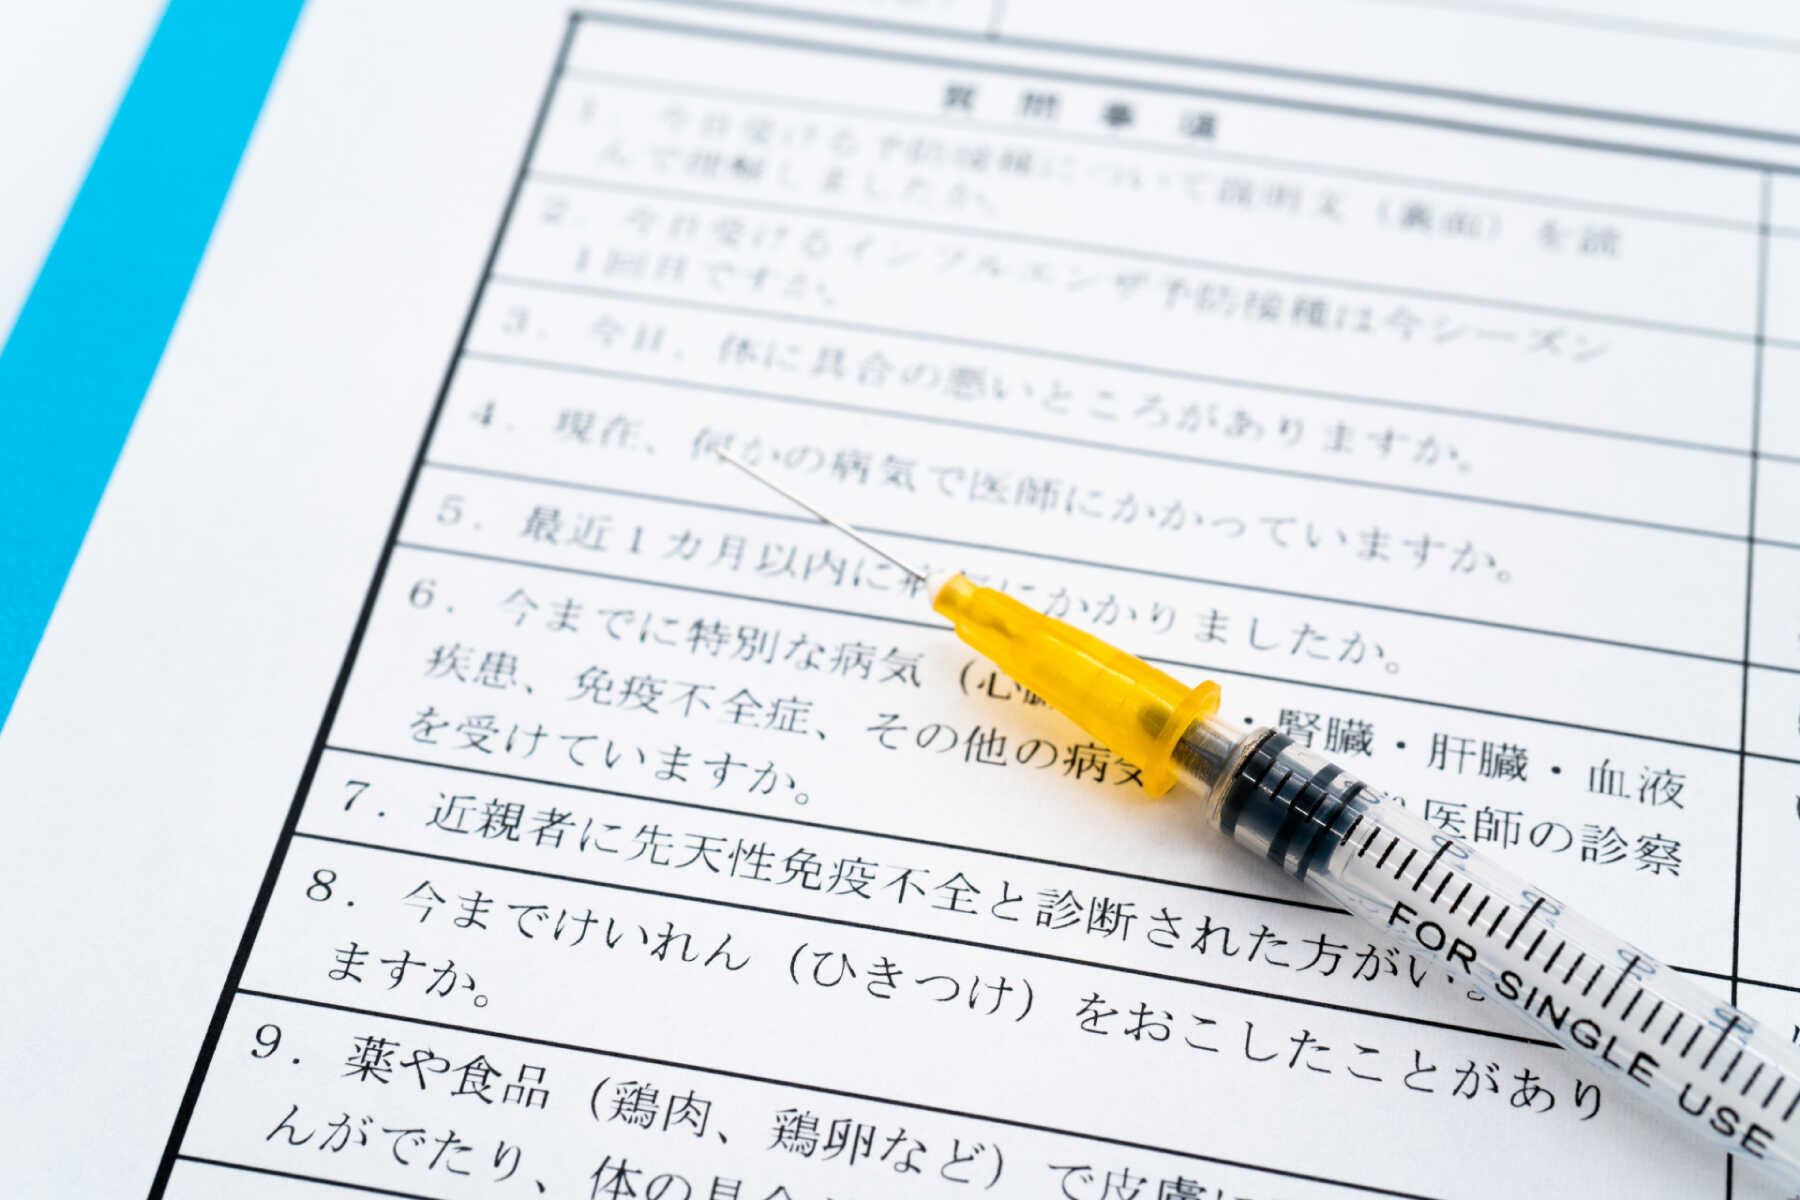 質問事項
1. 今日受ける予防接種について説明文（裏面）を読
んで理解しましたか。
2. 今日受けるインフルエンザ予防接種は今シーズン
1回目ですか。
3. 今日、体に具合の悪いところがありますか。
4. 現在、何かの病気で医師にかかっていますか。
5. 最近1カ月以内に病気にかかりましたか。
6. 今までに特別な病気（心臓・腎臓・肝臓・血液
疾患、免疫不全症、その他の病気 医師の診察
を受けていますか。
7. 近親者に先天性免疫不全と診断された方がい。
8. 今までにけいれん（ひきつけ）をおこしたことがあり
ますか。
9. 薬や食品（鶏肉、鶏卵など）で皮膚に
んがでたり、体の具合
FOR SINGLE USE